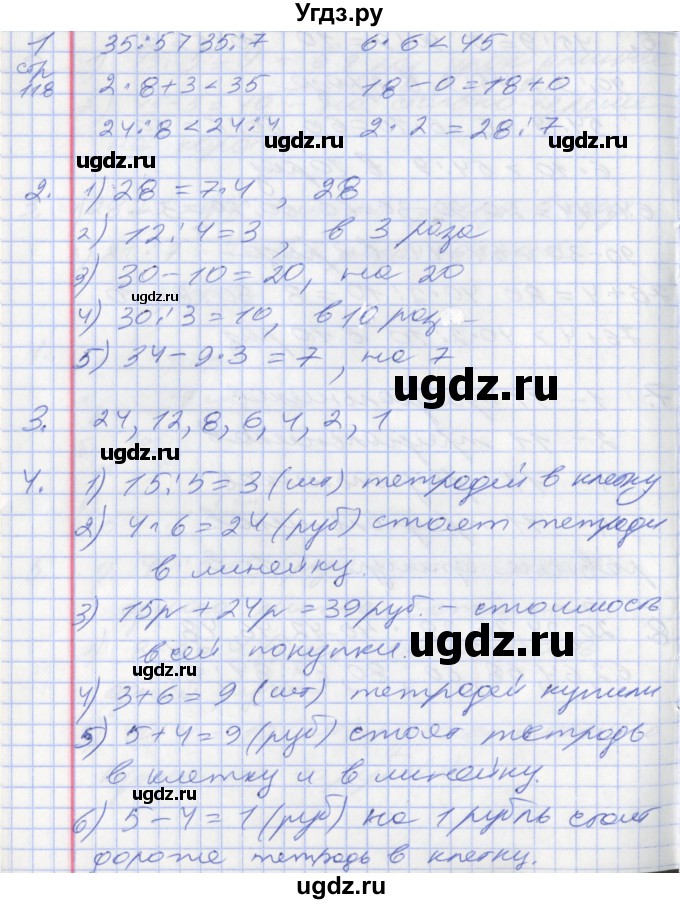 Угдз.ру
1 35:5 > 35:7 6·6 < 45
стр 118 2·8+3 < 35 18-0=18+0
24:8 < 24:4 2·2 = 28:7
ugdz.ru ugdz.ru
2. 1) 28 = 7·4, 28
2) 12:4=3, в 3 раза
3) 30-10=20, на 20
ugdz.ru
4) 30:3=10, в 10 раз
5) 34-9·3=7, на 7
ugdz.ru
3. 24, 12, 8, 6, 4, 2, 1
ugdz.ru
4. 1) 15:5=3 (шт) тетрадей в клетку
2) 4·6=24 (руб) стоят тетради
в линейку.
ugdz.ru
3) 15р+24р=39руб. - стоимость
всей покупки.
ugdz.ru
4) 3+6=9 (шт) тетрадей купили
5) 5+4=9 (руб) стоят тетрадь
в клетку и в линейку.
ugdz.ru
6) 5-4=1 (руб) на 1 рубль стоит
дороже тетрадь в клетку.
ugdz.ru